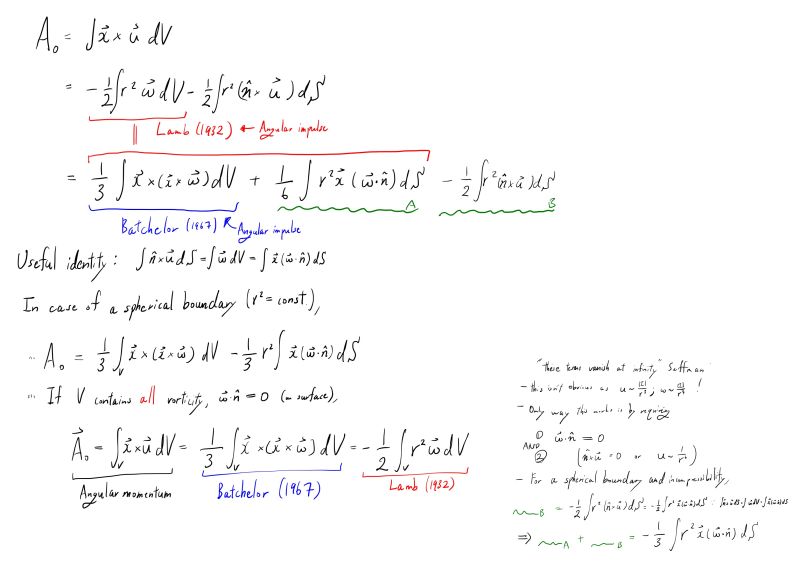 A₀ = ∫ x⃗ × u⃗ dV
= -½∫r² ω⃗ dV - ½∫r² (n̂ × u⃗) dS
|| Lamb (1932) ← Angular impulse
= ⅓ ∫ x⃗ × (x⃗ × ω⃗) dV + ⅙ ∫ r² x⃗ (ω⃗·n̂) dS - ½∫r² (n̂ × u⃗) dS
A B
Batchelor (1967) ↖ Angular impulse
Useful identity: ∫ n̂ × u⃗ dS = ∫ ω⃗ dV = ∫ x⃗ (ω⃗·n̂) dS
In case of a spherical boundary (r² = const.),
∴ A₀ = ⅓ ∫ᵥ x⃗ × (x⃗ × ω⃗) dV - ⅓ r² ∫ x⃗ (ω⃗·n̂) dS
∴ If V contains all vorticity, ω⃗·n̂ = 0 (on surface),
A⃗₀ = ∫ᵥ x⃗ × u⃗ dV = ⅓ ∫ᵥ x⃗ × (x⃗ × ω⃗) dV = -½ ∫ᵥ r² ω⃗ dV
Angular momentum Batchelor (1967) Lamb (1932)
"these terms vanish at infinity" Saffman
- this isn't obvious as u ~ ; ω ~ !
- Only way this works is by requiring
① ω⃗·n̂ = 0
AND
② (n̂ × u⃗ = 0 or u ~ )
- For a spherical boundary and incompressibility,
B = -½ ∫ r² (n̂ × u⃗) dS = -½ ∫ r² x⃗ (ω⃗·n̂) dS ∵ ∫ n̂ × u⃗ dS = ∫ ω⃗ dV = ∫ x⃗ (ω⃗·n̂) dS
⇒ A + B = -⅓ ∫ r² x⃗ (ω⃗·n̂) dS